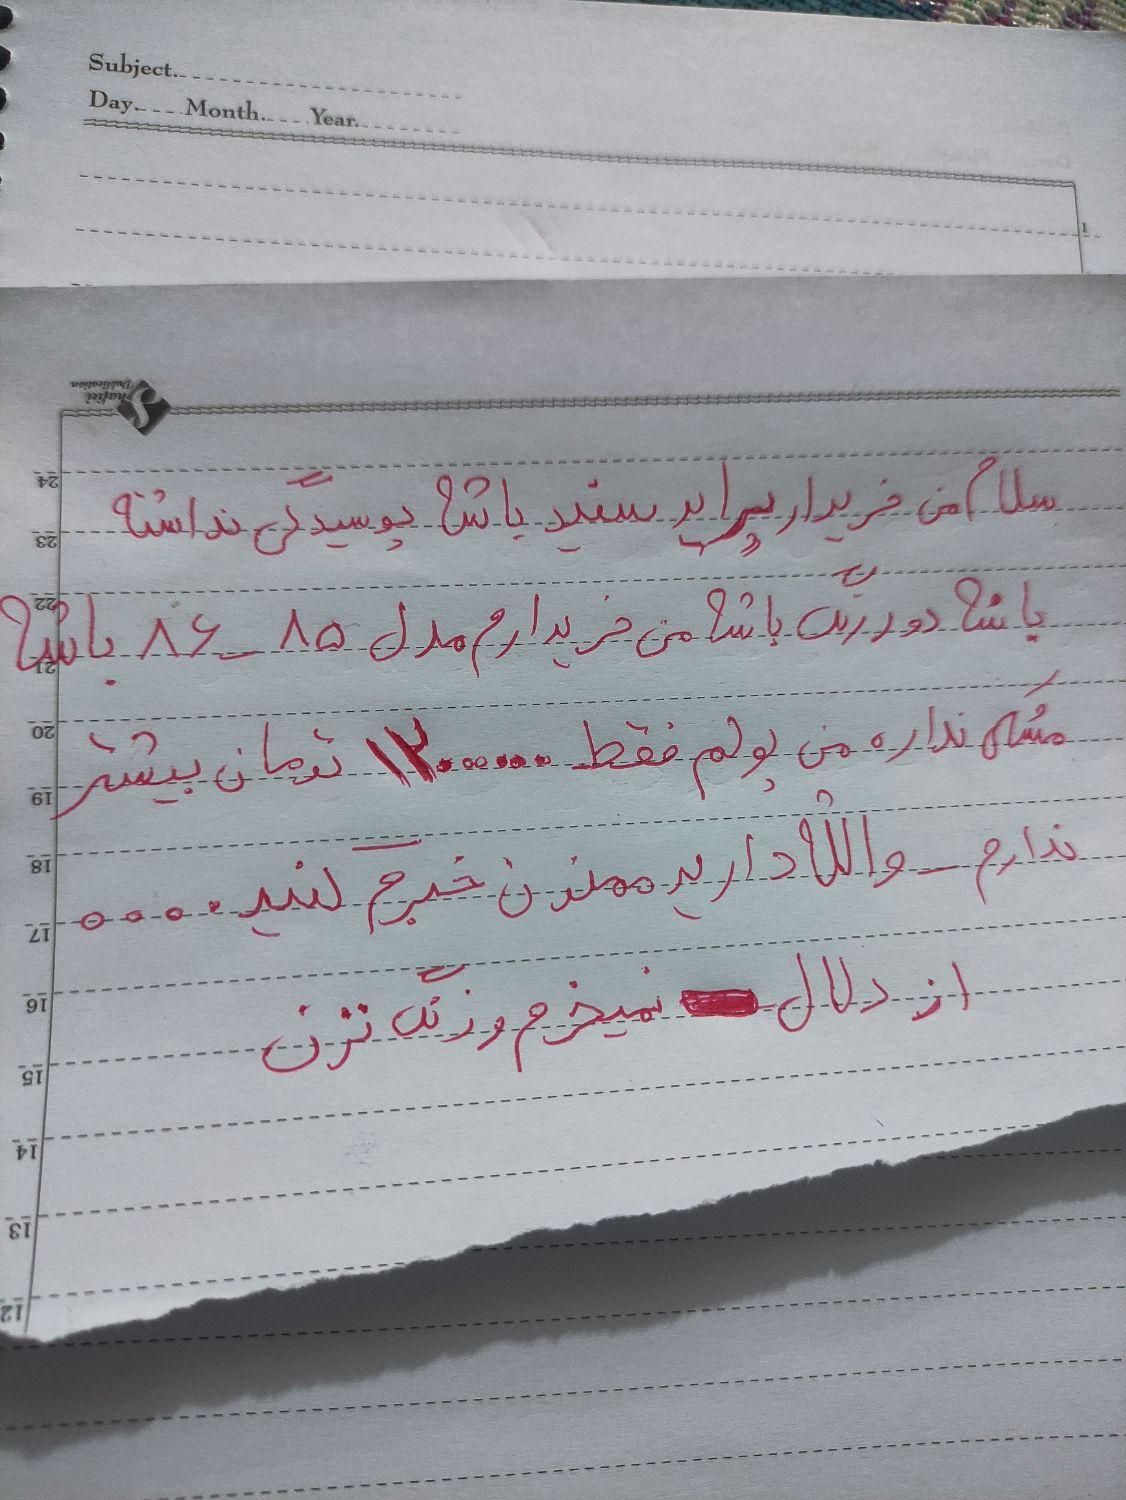 Subject.
Day. Month. Year.
1
Shafiei
Publication
24
سلام من خریدار پراید سفید باشه پوسیدگی نداشته
23
22
باشه دور رنگ باشه من خریدارم مدل ۸۵ _ ۸۶ باشه
21
20
مشکل نداره من پولم فقط ۱۲۰۰۰۰۰۰ تومان بیشتر
19
18
ندارم _ واللە دارید ممنون خبرم کنید ....
17
16
از دلال نمیخرم و زنگ نزن
15
14
13
12